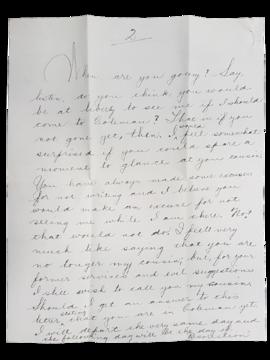 2
When are you going? Say,
listen, do you think you would
be at liberty to see me if I should
come to Coleman? That is if you
not gone yet, then. I would feel somewhat
surprised if you could spare a
moment to glance at your cousin.
You have always made some excuse
for not writing and I believe you
would make an excuse for not
seeing me while I am there. No!
that would not do. I feel very
much like saying that you are
no longer my cousin, but, for your
former services and evil suggestions
I still wish to call you my cousin.
Should I get an answer to this
letter stating that you are in Coleman yet,
I will depart the very same day and
the following day will be the day of